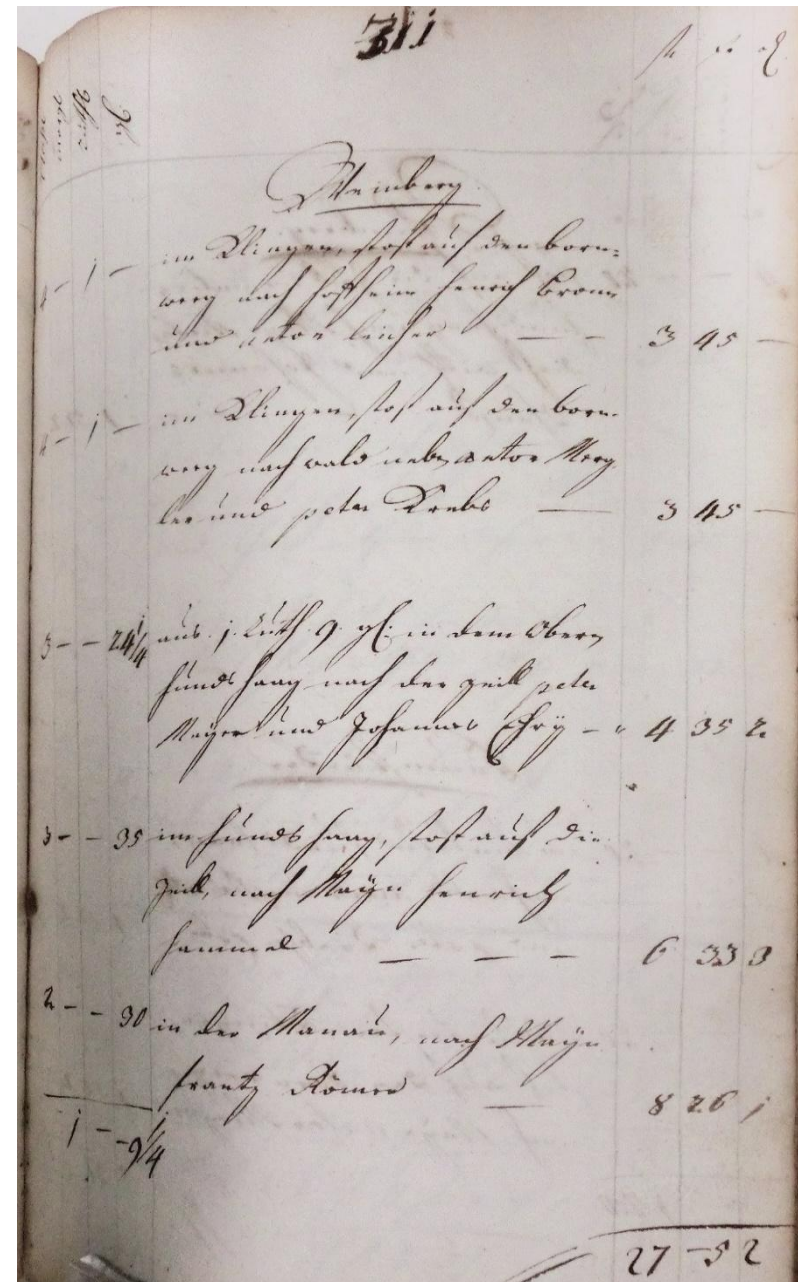 311
fl xr ₰
Weinberg
4 – 1 – im Klingen, stost auf den born=
weeg nach hoffheim Henrich Bronn
und anton leicher — – 3 45 –
4 – 1 – im Klingen, stost auf den born=
weeg nach wald neben anton Meeg
ler und peter Krebs — 3 45 –
3 – – 24 1/4 aus 1. Ruth 9. in dem Obern
hunds haag nach der zeill peter
Mayer und Johannes – 4 35 2
3 – – 35 im hunds haag, stost auf die
zeill, nach Mayn Henrich
hammel — — — 6 33 3
2 – – 30 in der Manau, nach Mayn
frantz Römer — 8 26 1
1 – – 9 1/4
27 – 5 2